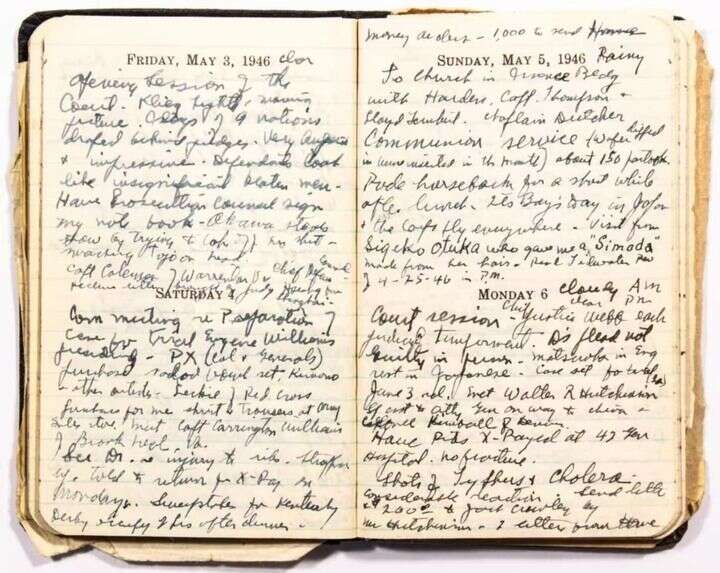 FRIDAY, MAY 3, 1946 clear
Opening Session of the
Court. Klieg lights, moving
picture. Flags of 9 nations
draped behind judges. Very
& impressive. Defendants look
like insignificant beaten men.
Have Prosecution Counsel sign
my note book - Okawa steals
show by trying to take off his shirt -
smacking Tojo on head
Capt Coleman of Warrenton Va Chief Defense Counsel
SATURDAY 4
Com meeting re Preparation of
case for trial. Eugene Williams
presiding - PX (Col & Generals)
purchase bowl set - Kimono
& other articles - of Red Cross
for me shirt & trousers at Army
Sales store. Met Capt Carrington Williams
of Brook Va.
See Dr. re injury to rib.
Told to return for X-Ray on
Monday. Sweepstakes for Kentucky
Derby after dinner.
money orders - 1,000 to send Home
SUNDAY, MAY 5, 1946 Rainy
To Church in Finance Bldg
with Harders, Capt. Thompson &
Lloyd. Chaplain
Communion service (wafer dipped
in wine inserted in the mouth) about 150 partook.
Rode horseback for a short while
after lunch. Its Boy's Day in Japan
& the carp fly everywhere - Visit from
Sigeko Otuka who gave me a "Simoda"
made from her hair - Read Tidewater Rev
of 4-25-46 in P.M.
MONDAY 6 cloudy AM
clear P.M.
Court session - Chief Justice Webb
D's plead not
guilty in person - Matsuoka in Eng
rest in Japanese - Case set for trial
June 3rd. Met Walter R Hutchinson
of Asst to Atty Gen on way to China &
Have Ribs X-Rayed at 42 Gen
Hospital. No fracture.
Shots of Typhus & Cholera -
considerable reaction - Send letter
& $200 to by
Mr Hutchinson - 2 letters from